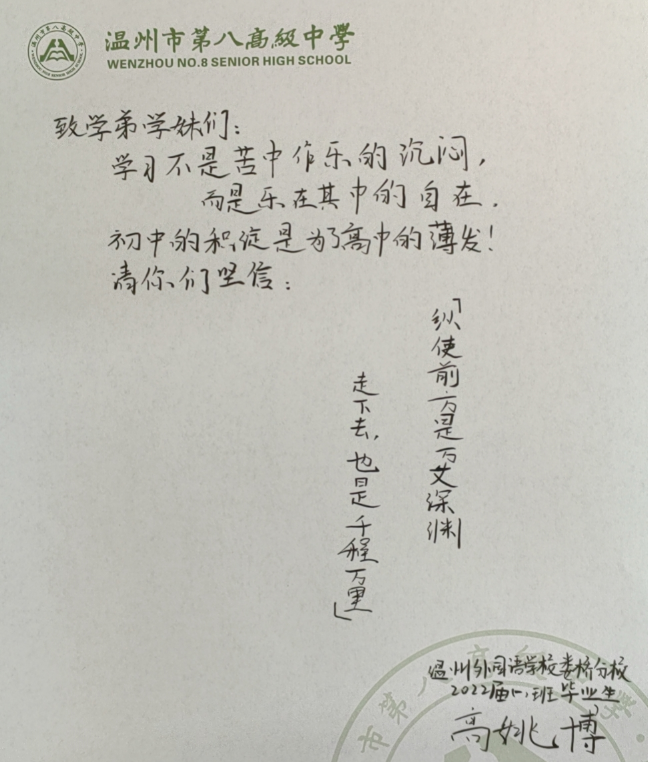 温州市第八高級中學
WENZHOU NO.8 SENIOR HIGH SCHOOL
致学弟学妹们：
学习不是苦中作乐的沉闷，
而是乐在其中的自在．
初中的积淀是为了高中的薄发！
请你们坚信：
「纵使前方是万丈深渊
走下去，也是千程万里」
温州外国语学校娄桥分校
2022届 班毕业生
高姚博